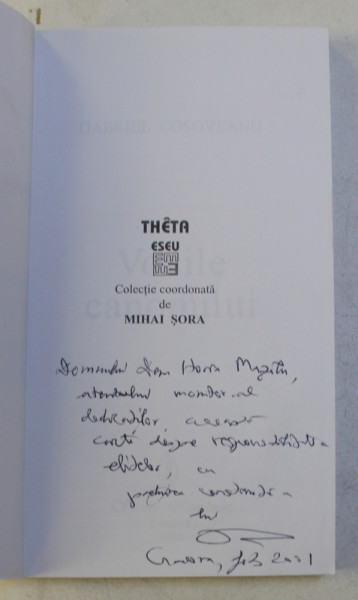 THÊTA
ESEU
Colecție coordonată
de
MIHAI ȘORA
Domnului Dan Horia Mazilu,
al
dedicațiilor, această
carte despre responsabilitatea
elitelor, cu
prețuirea constantă a
lui
Craiova, feb 2001